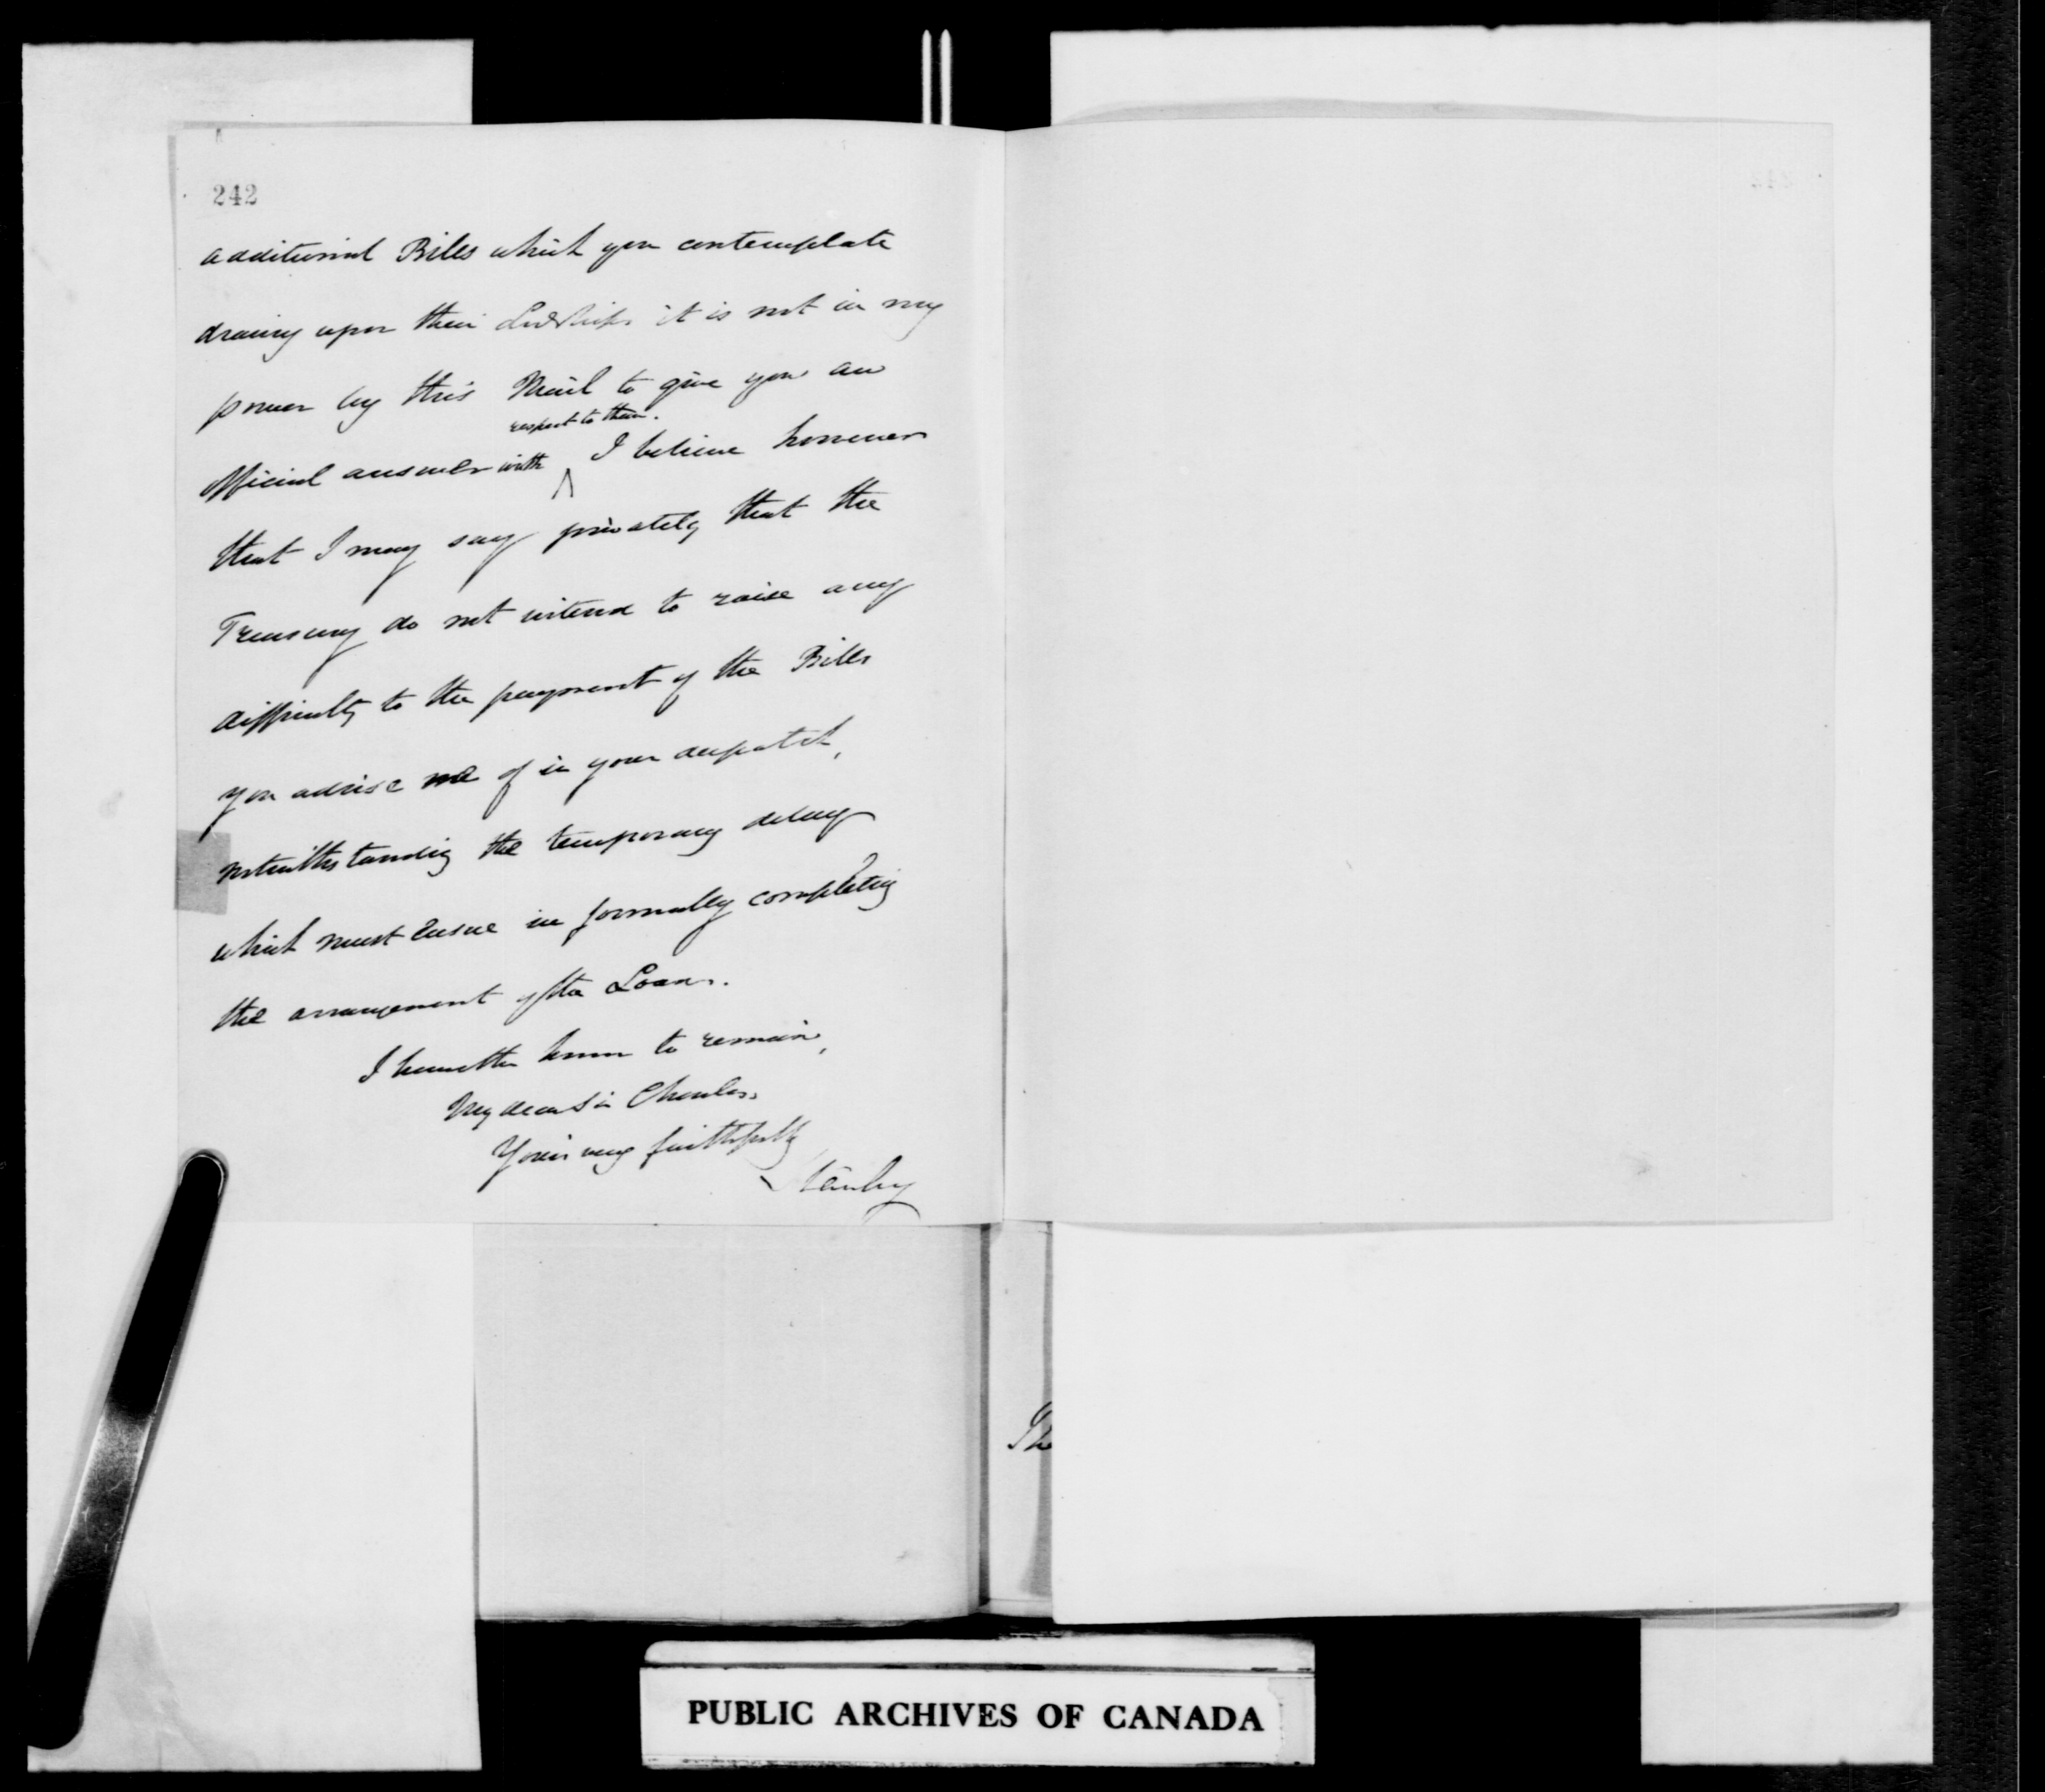 242
additional Bills which you contemplate
drawing upon their Lordships it is not in my
power by this Mail to give you an
respect to them.
official answer with ^ I believe however
that I may say privately that the
Treasury do not intend to raise any
difficulty to the payment of the Bills
you advise me of in your despatch,
notwithstanding the temporary delay
which must ensue in formally completing
the arrangement of the Loan.
I have the honor to remain,
My dear Sir Charles,
Yours very faithfully
Stanley
The
PUBLIC ARCHIVES OF CANADA